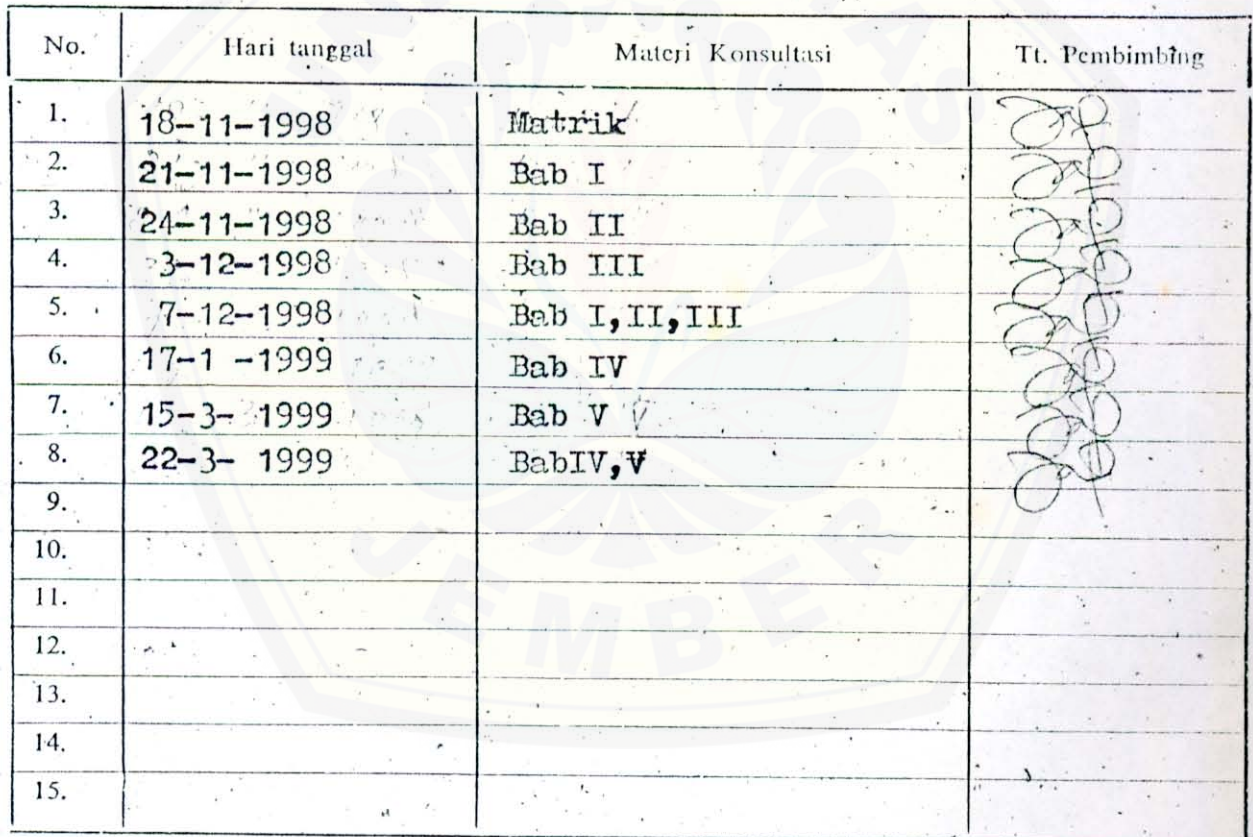 No. Hari tanggal Materi Konsultasi Tt. Pembimbing
1. 18-11-1998 Matrik
2. 21-11-1998 Bab I
3. 24-11-1998 Bab II
4. 3-12-1998 Bab III
5. 7-12-1998 Bab I,II,III
6. 17-1 -1999 Bab IV
7. 15-3- 1999 Bab V
8. 22-3- 1999 BabIV,V
9.
10.
11.
12.
13.
14.
15.
JEMBER